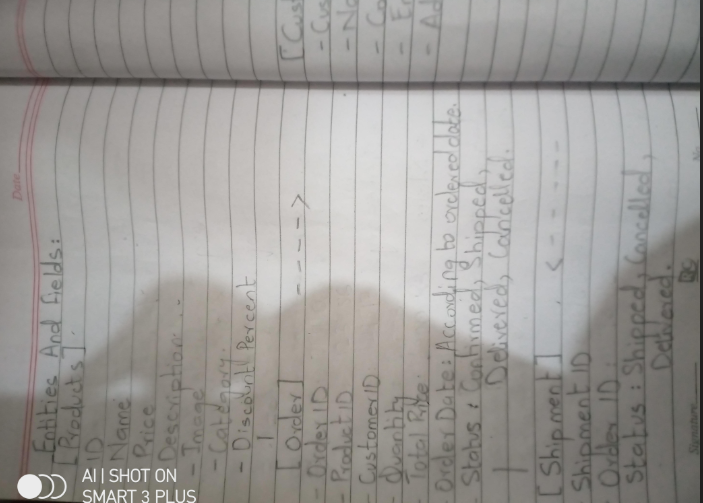 Date
Entities And Fields:
[Products]
ID
Name
Price
Description
- Image
- Category
- Discount Percent
[Order] ----->
- Order ID
- Product ID
- Customer ID
- Quantity
Total Price
- Order Date: According to ordered date.
Status: Confirmed, Shipped,
Delivered, Cancelled.
[Shipment] <-----
Shipment ID
Order ID
Status: Shipped, Cancelled,
Delivered.
Signature
No
[Cust
- Cus
- Na
- Co
- Em
- Ad
AI | SHOT ON
SMART 3 PLUS